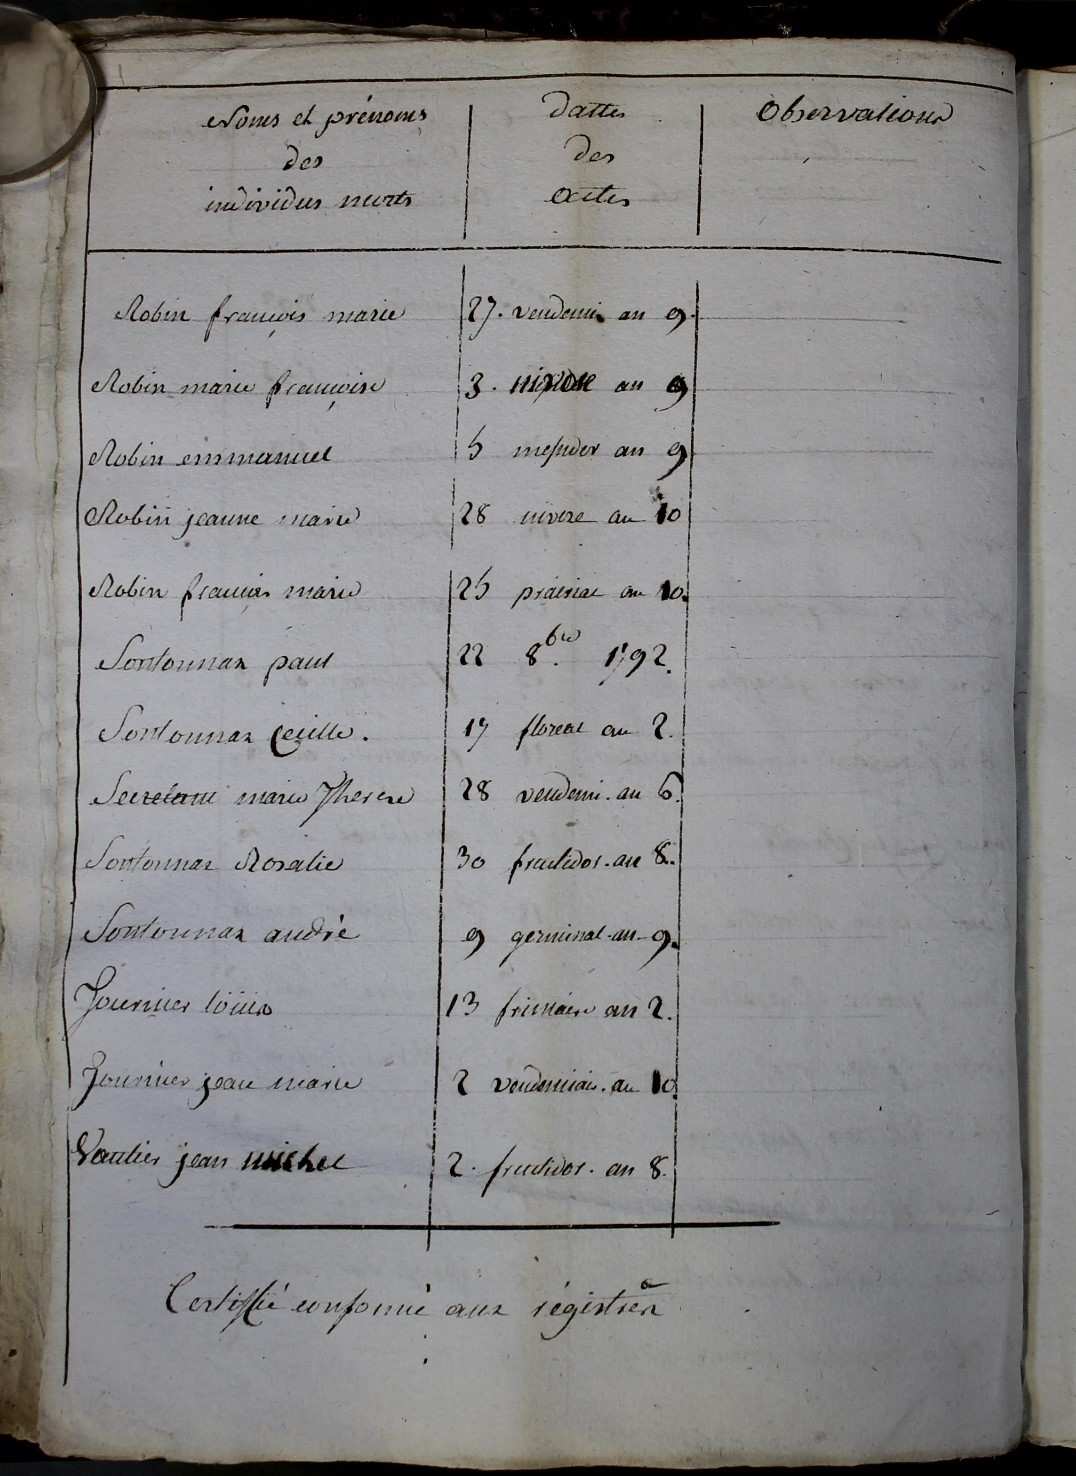 Noms et prénoms dattes Observations
des des
individus morts actes
Robin françois marie 27. vendemi. an 9.
Robin marie françoise 3. nivose an 9
Robin emmanuel 5 messidor an 9
Robin jeanne marie 28 nivose an 10
Robin françois marie 25 prairial an 10.
Sontonnax paul 22 8.bre 1792.
Sontonnax Cecille. 17 floreal an 2.
Secretant marie Therese 28 vendemi. an 6.
Sontonnax Rosalie 30 fructidor. an 8.
Sontonnax andré 9 germinal. an 9.
Tournier loüis 13 frimaire an 2.
Tournier jean marie 2 vendemiair. an 10.
Vautier jean michel 2. fructidor. an 8.
Certiffié conforme aux régistres